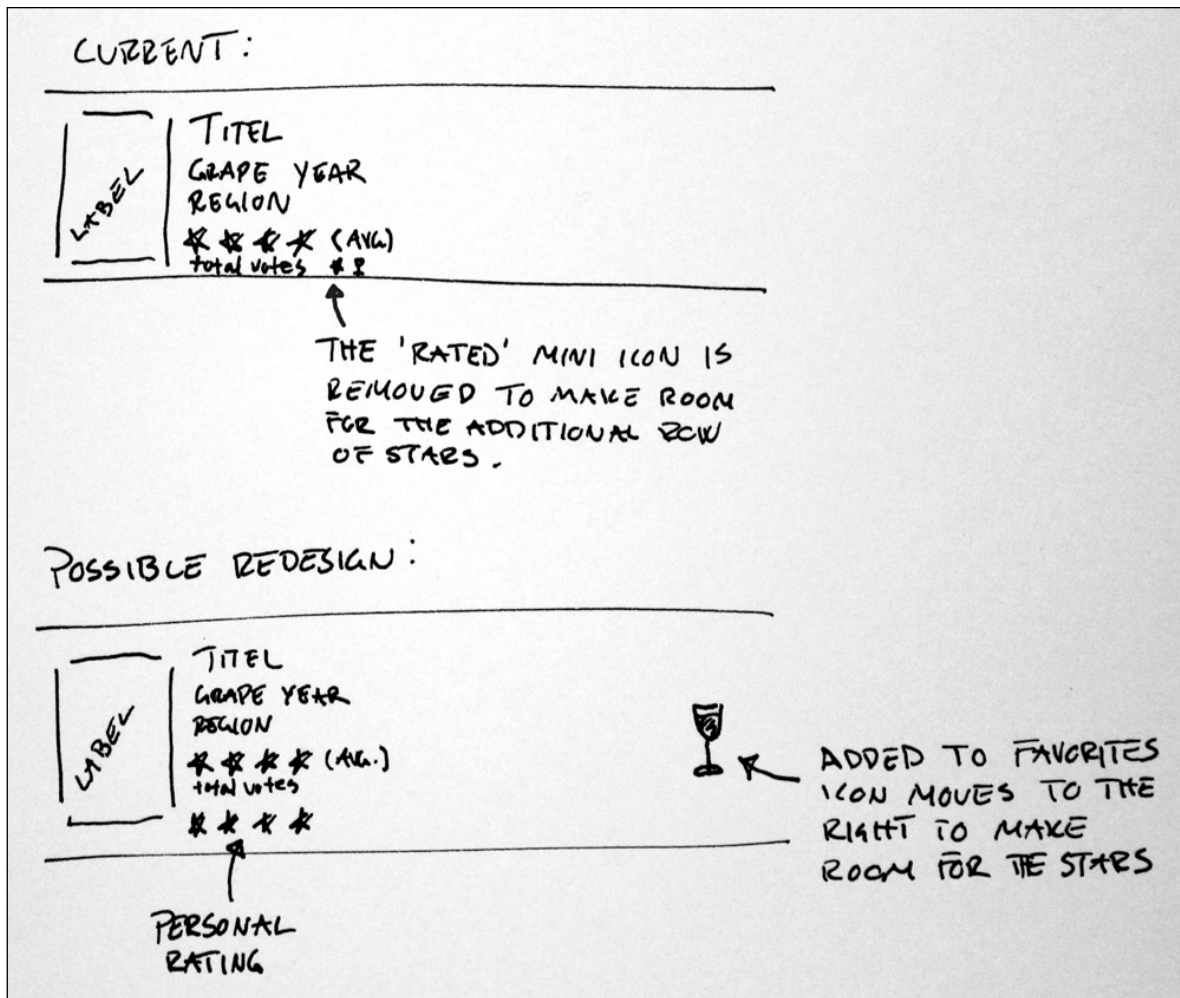 CURRENT:
LABEL
TITEL
GRAPE YEAR
REGION
(AVG.)
total votes
THE 'RATED' MINI ICON IS
REMOVED TO MAKE ROOM
FOR THE ADDITIONAL ROW
OF STARS.
POSSIBLE REDESIGN:
LABEL
TITEL
GRAPE YEAR
REGION
(AVG.)
total votes
ADDED TO FAVORITES
ICON MOVES TO THE
RIGHT TO MAKE
ROOM FOR THE STARS
PERSONAL
RATING